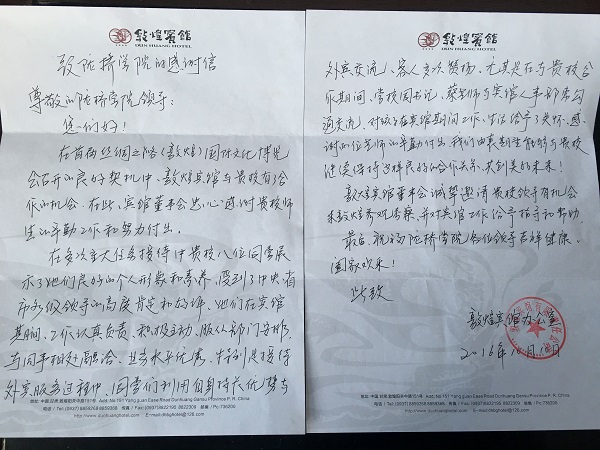 敦煌宾馆
DUN HUANG HOTEL
致陇桥学院的感谢信
尊敬的陇桥学院领导：
您们好！
在首届丝绸之路（敦煌）国际文化博览
会召开的良好契机中，敦煌宾馆与贵校有了合
作的机会。在此，宾馆董事会忠心感谢贵校师
生的辛勤工作和努力付出。
在多次重大任务接待中贵校八位同学展
示了她们良好的个人形象和素养，受到了中央、省
市各级领导的高度肯定和好评。她们在宾馆
期间，工作认真负责、积极主动、服从部门安排，
与同事相处融洽、业务水平优秀，特别是接待
外宾服务过程中，同学们利用自身特长优势与
地址：中国.甘肃.敦煌阳关中路151号 Add: No 151 Yang guan East Road Dunhuang Gansu Province P. R. China
敦煌宾馆
DUN HUANG HOTEL
外宾交流，客人多次赞扬。尤其是在与贵校合
作期间，学校周书记、蔡老师与宾馆人事部常沟
通交流，对孩子在宾馆期间工作、生活给予了关怀。感
谢两位老师的辛勤付出，我们由衷到生能够与贵校
继续保持这样良好的合作关系，共创美好未来！
敦煌宾馆董事会诚挚邀请贵校领导有机会
来敦煌参观考察，并对宾馆工作给予指导和帮助。
最后，祝福陇桥学院各位领导吉祥健康。
阖家欢乐！
此致
敦煌宾馆办公室
2016年10月18日
地址：中国.甘肃.敦煌阳关中路151号 Add: No 151 Yang guan East Road Dunhuang Gansu Province P. R. China